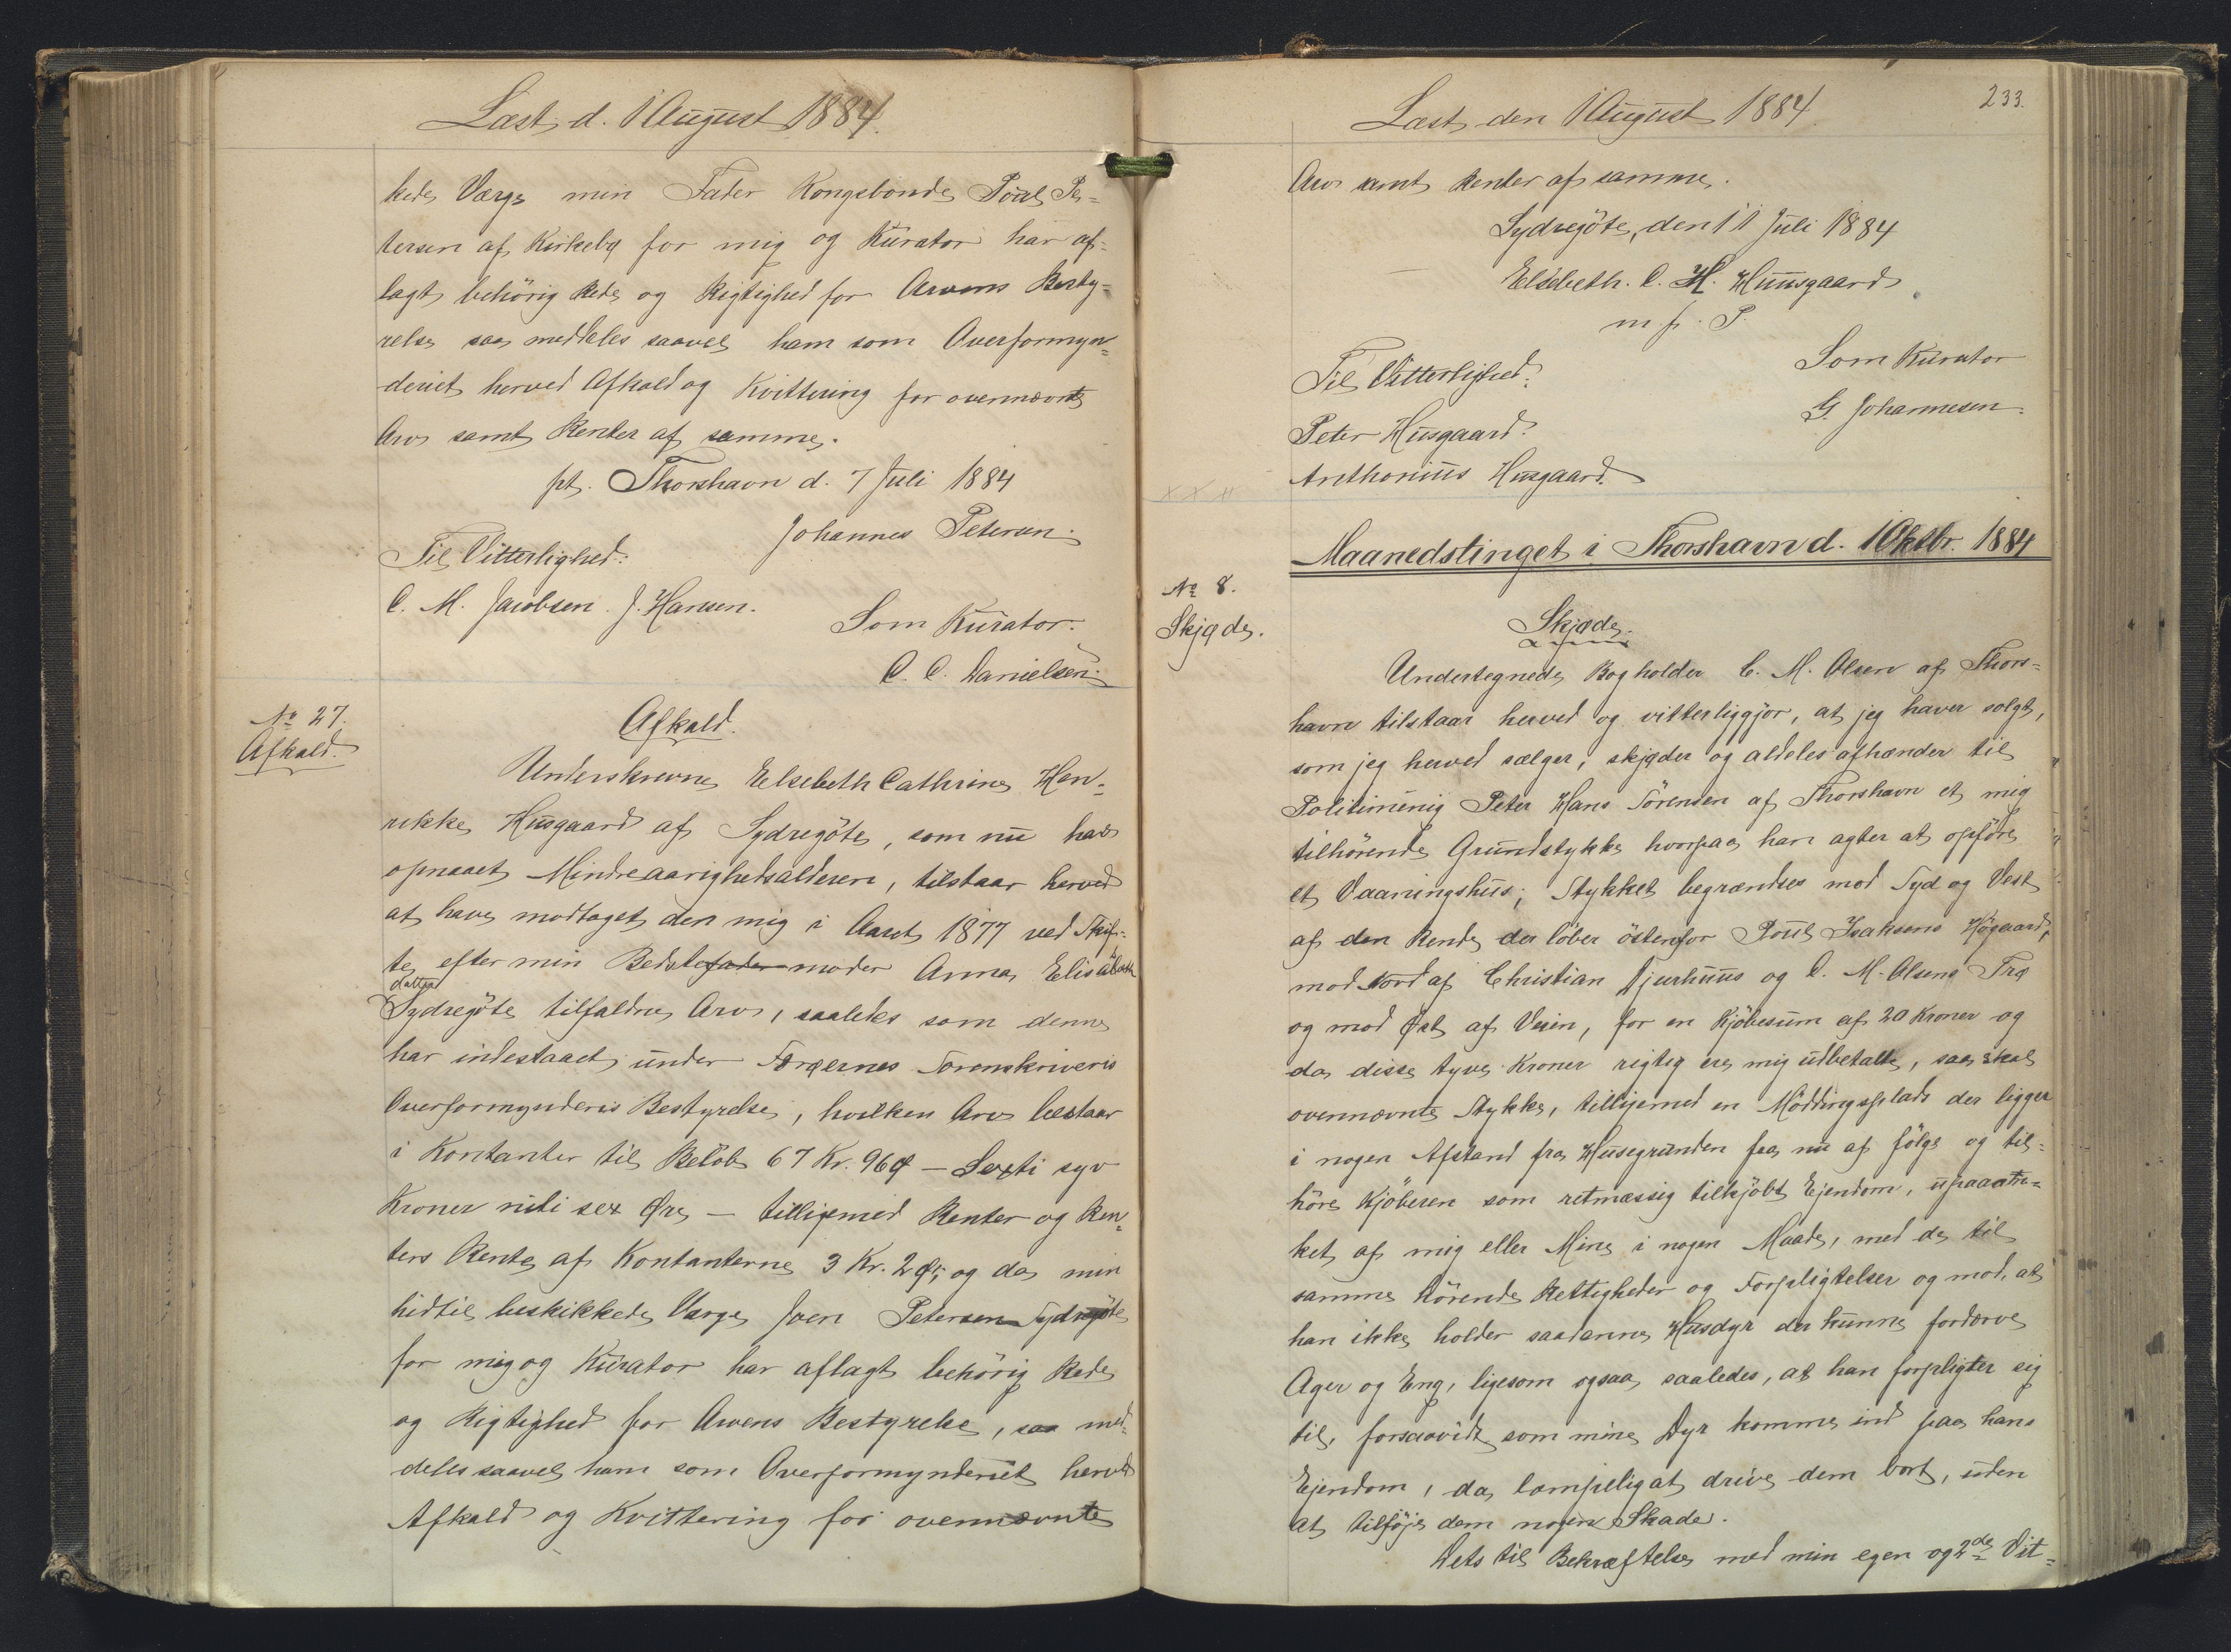 Læst d. 1 August 1884.
kede Værge min Fader Kongsbonde Poul Pe-
tersen af Kirkeby for mig og Kurator har af-
lagt behörig Rede og Rigtighed for Arvens Besty-
relse saa meddeles saavel ham som Overformyn-
deriet herved Afkald og Kvittering for ovennævnte
Arv samt Renter af samme.
pt. Thorshavn d. 7 Juli 1884
Johannes Petersen
Til Vitterlighed:
C. M. Jacobsen. J. Hansen.
Som Kurator.
C. C. Danielsen.
No 27.
Afkald.
Afkald.
Underskrevne Elsebeth Cathrine Hen-
rikke Husgaard af Sydregöte, som nu har
opnaaet Mindreaarighedsalderen, tilstaar herved
at have modtaget den mig i Aaret 1877 ved Skif-
te efter min Bedstefader moder Anna Elisabeth
datter
Sydregöte tilfaldne Arv, saaledes som denne
har indestaaet under Færøernes Sorenskriveris
Overformynderis Bestyrelse, hvilken Arv bestaar
i Kontanter til Belöb 67 Kr. 96 Ø — Sexti syv
Kroner niti sex Øre — tilligemed Renter og Ren-
ters Rente af Kontanterne 3 Kr. 2 Ø; og da min
hidtil beskikkede Værge Joen Petersen Sydregöte
for mig og Kurator har aflagt behörig Rede
og Rigtighed for Arvens Bestyrelse, saa med-
deles saavel ham som Overformynderiet herved
Afkald og Kvittering for ovennævnte
Læst den 1 August 1884.
233.
Arv samt Renter af samme.
Sydregöte, den 11 Juli 1884
Elsebeth. C. H. Huusgaard
m. f. P.
Til Vitterlighed:
Som Kurator
G. Johannesen.
Peter Husgaard.
Anthonius Husgaard.
Maanedstinget i Thorshavn d. 1 Oktbr. 1884
No 8.
Skjøde.
Skjøde.
Undertegnede Bogholder C. M. Olsen af Thors-
havn tilstaar herved og vitterliggjør, at jeg haver solgt,
som jeg herved sælger, skjøder og aldeles afhænder til
Politimenig Peter Hans Sörensen af Thorshavn et mig
tilhörende Grundstykke hvorpaa han agter at opföre
et Vaaningshus; Stykket begrændses mod Syd og Vest
af den Rende der löber östenfor Poul Isaksens Högaard,
mod Nord af Christian Djurhuus og C. M. Olsens Trø
og mod Øst af Veien, for en Kjöbesum af 20 Kroner og
da disse tyve Kroner rigtig ere mig udbetalte, saa skal
ovennævnte Stykke, tilligemed en Möddingsplads der ligger
i nogen Afstand fra Husegrunden fra nu af fölge og til-
höre Kjöberen som retmæssig tilkjöbt Ejendom, upaaan-
ket af mig eller Mine i nogen Maade, med de til
samme hörende Rettigheder og Forpligtelser og mod, at
han ikke holder saadanne Husdyr der kunne fordærve
Ager og Eng, ligesom ogsaa saaledes, at han forpligter sig
til, forsaavidt som mine Dyr komme ind paa hans
Ejendom, da lempelig at drive dem bort, uden
at tilföje dem nogen Skade.
Dets til Bekræftelse med min egen og 2de Vit-